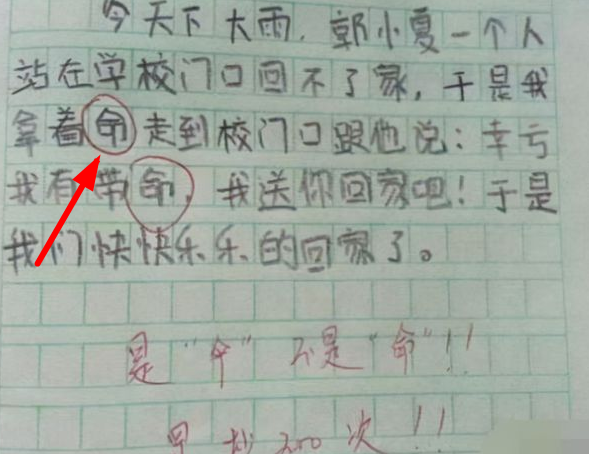 今天下大雨，郭小夏一个人
站在学校门口回不了家，于是我
拿着命走到校门口跟他说：幸亏
我有带命，我送你回家吧！于是
我们快快乐乐的回家了。
是“伞”不是“命”！！
罚抄200次！！